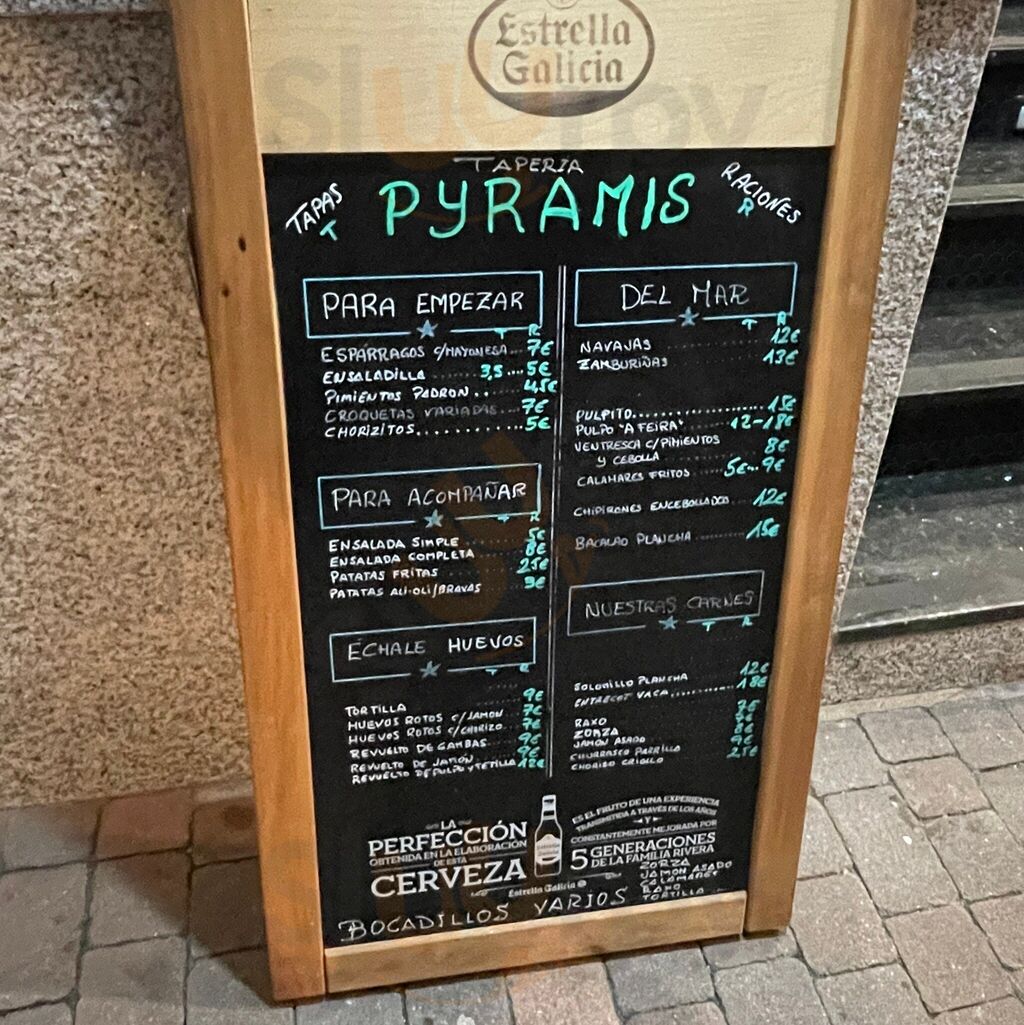 Estrella
Galicia
TAPERIA
PYRAMIS
TAPAS
T
RACIONES
R
PARA EMPEZAR
T R
ESPÁRRAGOS C/MAYONESA... 7€
ENSALADILLA 3,5....5€
PIMIENTOS PADRON.. 4,5€
CROQUETAS VARIADAS... 7€
CHORIZITOS........... 5€
PARA ACOMPAÑAR
T R
ENSALADA SIMPLE 5€
ENSALADA COMPLETA 8€
PATATAS FRITAS 2,5€
PATATAS ALI-OLI/BRAVAS 3€
ÉCHALE HUEVOS
T R
TORTILLA 9€
HUEVOS ROTOS C/JAMON 7€
HUEVOS ROTOS C/CHORIZO 7€
REVUELTO DE GAMBAS 9€
REVUELTO DE JAMÓN 9€
REVUELTO DE PULPO Y TETILLA 12€
DEL MAR
T R
NAVAJAS 12€
ZAMBURIÑAS 13€
PULPITO............ 15€
PULPO "A FEIRA" 12-18€
VENTRESCA C/PIMIENTOS
Y CEBOLLA 8€
CALAMARES FRITOS 5€...9€
CHIPIRONES ENCEBOLLADOS 12€
BACALAO PLANCHA 15€
NUESTRAS CARNES
T R
SOLOMILLO PLANCHA 12€
ENTRECOT VACA 18€
RAXO
ZORZA
JAMON ASADO
CHURRASCO PARRILLA 9€
CHORIZO CRIOLLO 2,5€
LA
PERFECCIÓN
OBTENIDA EN LA ELABORACIÓN
DE ESTA
CERVEZA
Estrella Galicia
ES EL FRUTO DE UNA EXPERIENCIA
TRANSMITIDA A TRAVÉS DE LOS AÑOS
Y
CONSTANTEMENTE MEJORADA POR
5 GENERACIONES
DE LA FAMILIA RIVERA
BOCADILLOS VARIOS
ZORZA
JAMON ASADO
CALAMARES
RAXO
TORTILLA